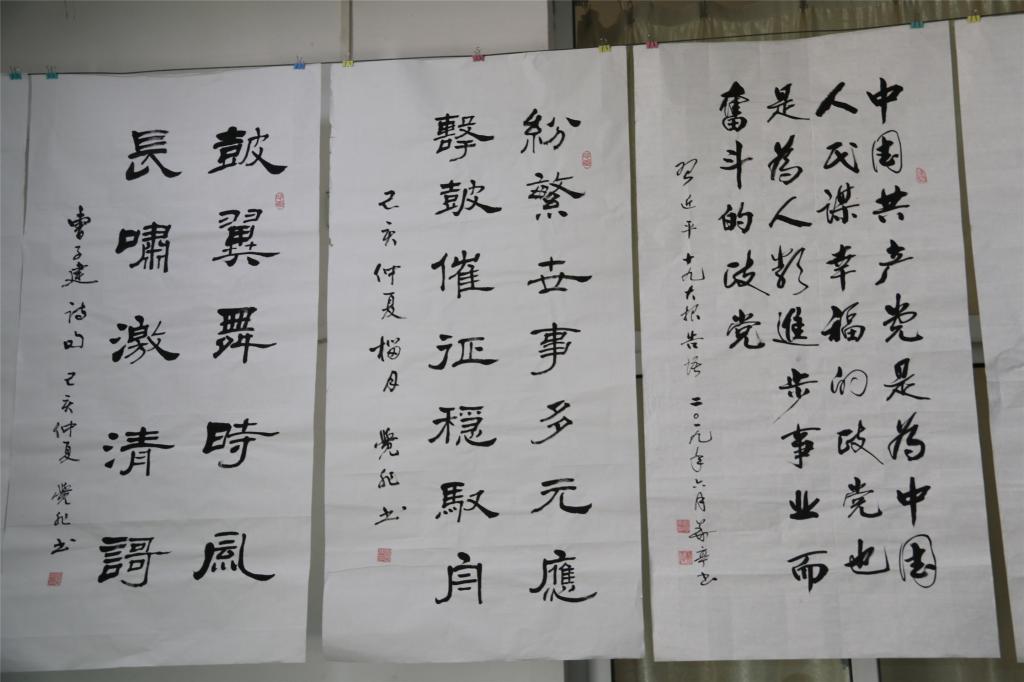 中国共产党是為中国
人民谋幸福的政党也
是為人類進步事业而
奮斗的政党
习近平十九大报告语 二〇一九年六月 书
紛繁世事多元應
擊鼓催征穩馭舟
己亥仲夏榴月 覺非书
鼓翼舞時風
長嘯激清謌
曹子建诗句 己亥仲夏 覺非书